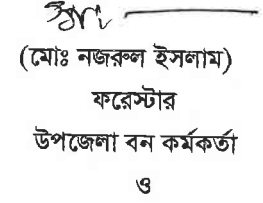 (মোঃ নজরুল ইসলাম)
ফরেস্টার
উপজেলা বন কর্মকর্তা
ও